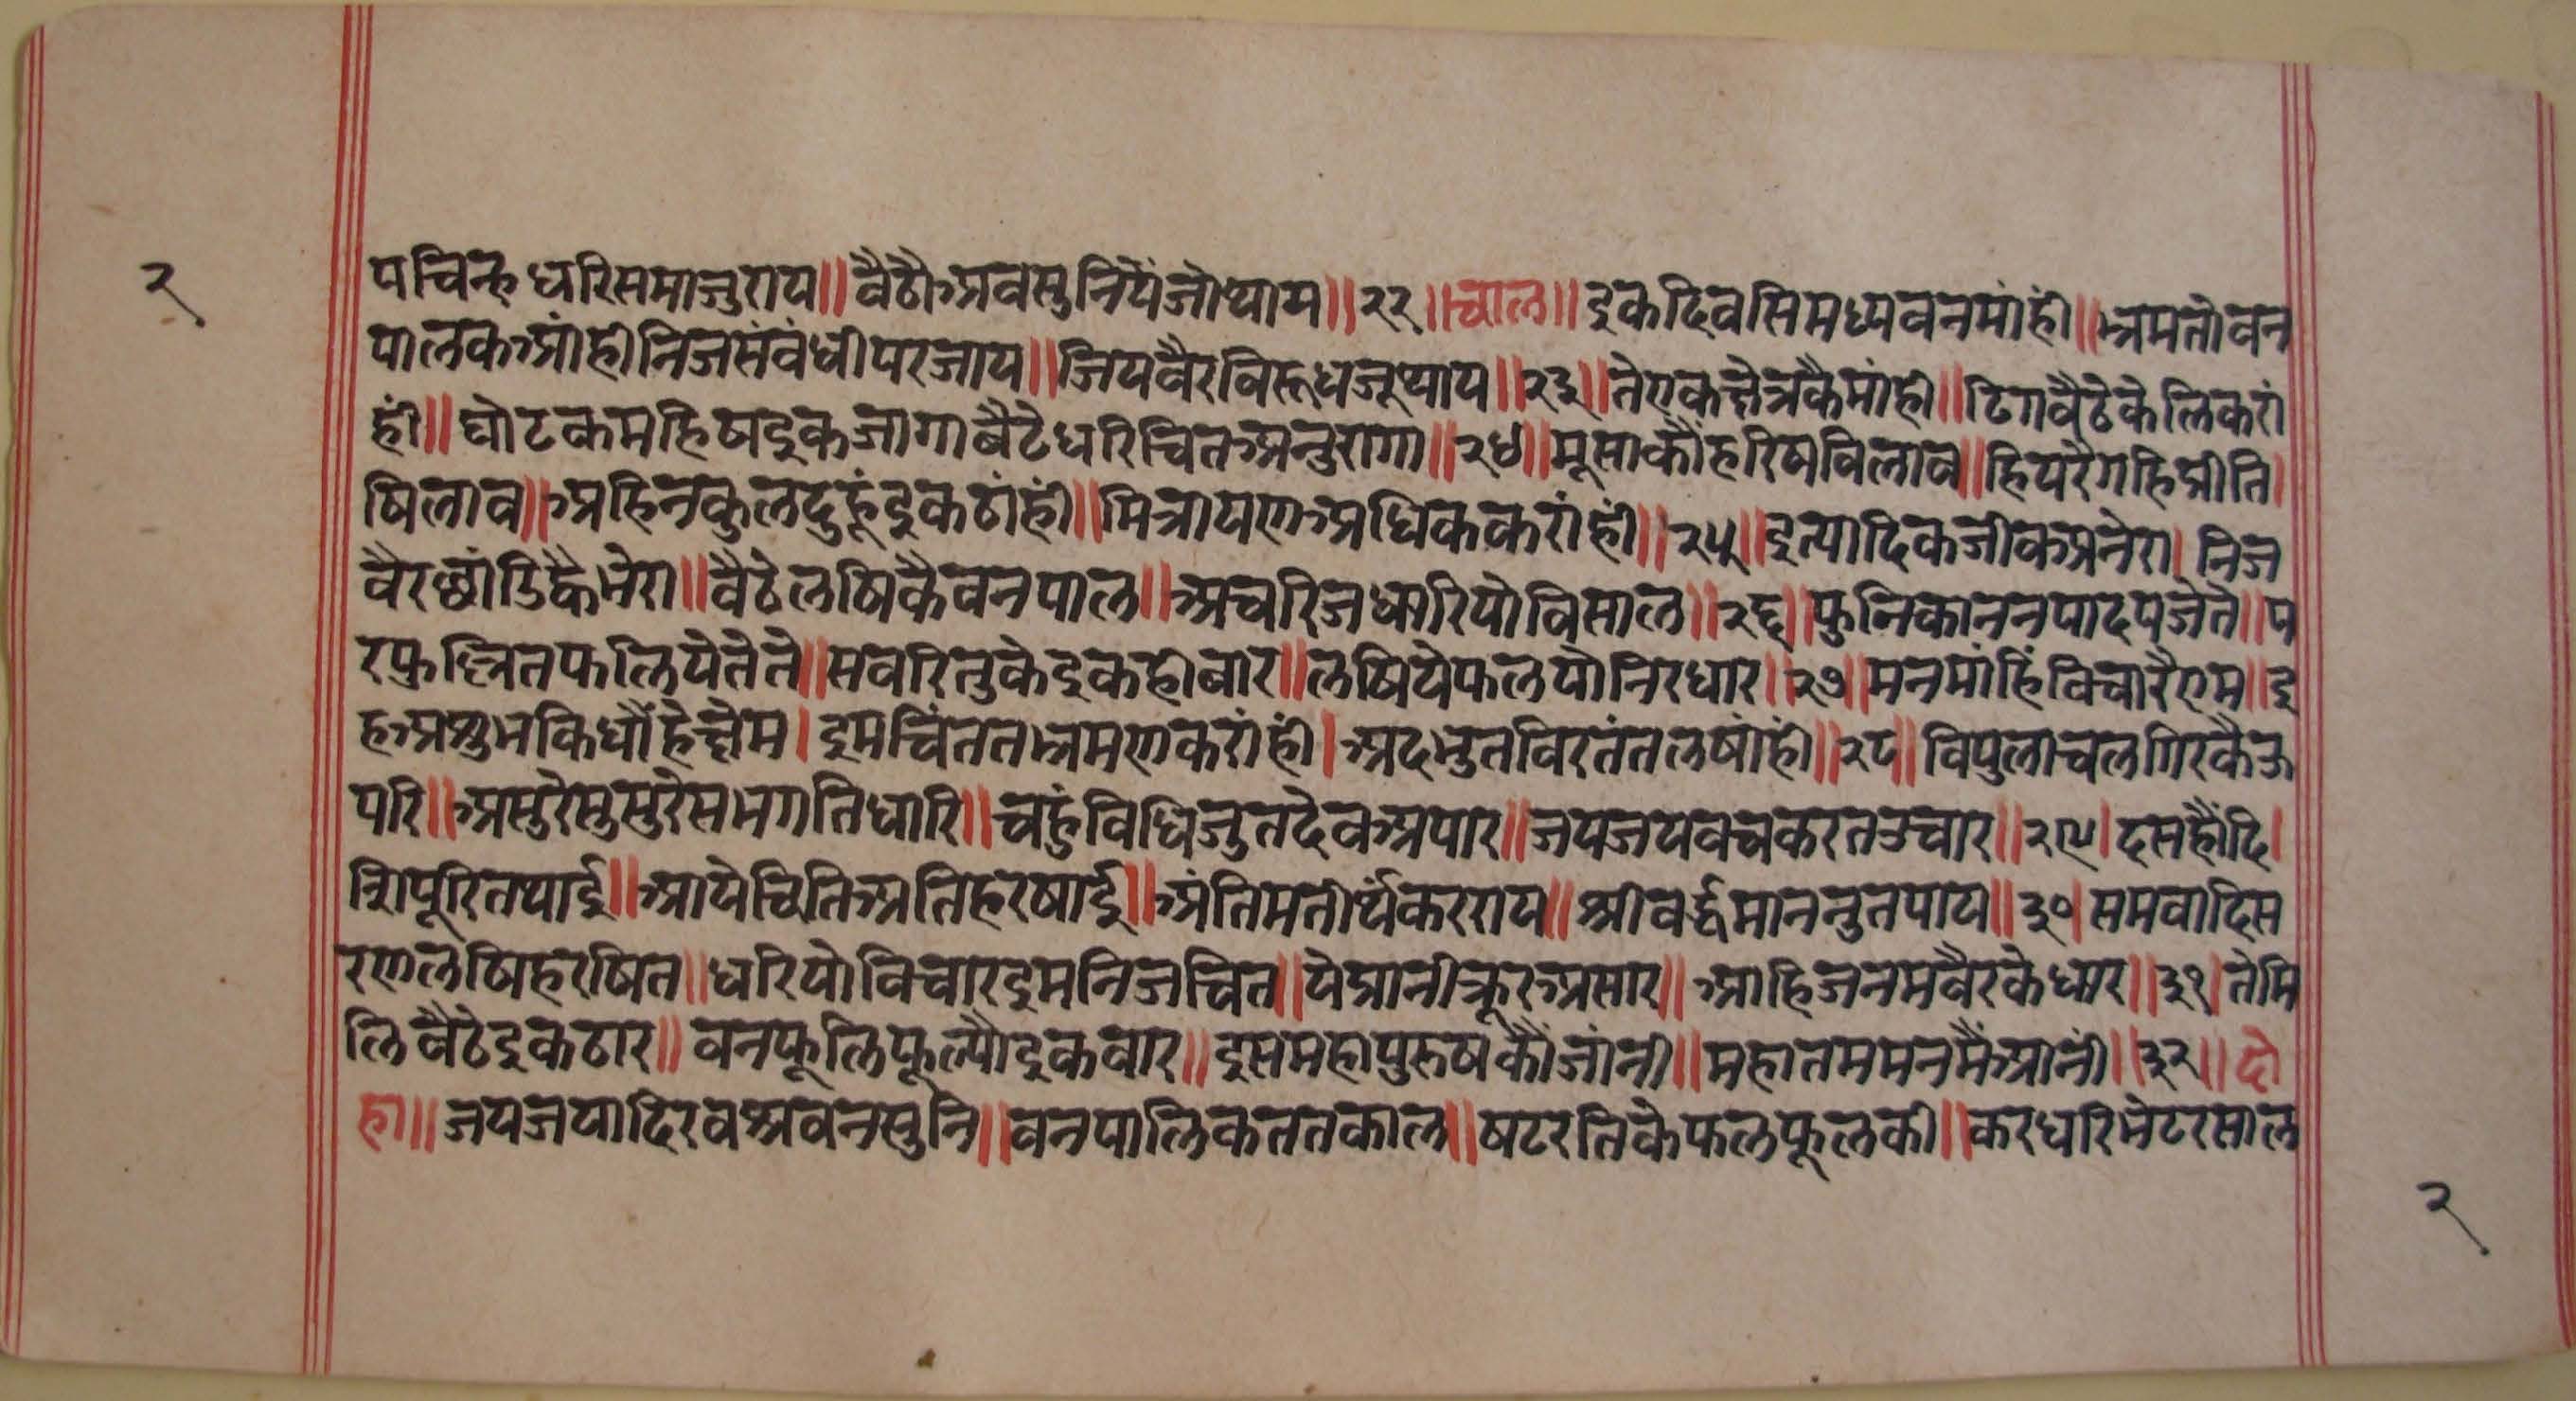 २
पचिन्ह धरिसमाजुराय॥ वैठौअवसुनियेंजोथाय॥२२॥चाल॥ इकदिवसिमध्यवनमांही॥भ्रमतोवन
पालकआंहीनिजसंवंधीपरजाय॥जियवैरविरूधजूथाय॥२३॥तेएकक्षेत्रकैमांही॥ढिगवैठेकेलिकरां
हीं॥घोटकमहिषइकजागावैठेधरिचितअनुरागा॥२४॥मूसाकौंहरिषविलाव॥हियरैगहिप्रीति
षिलाव॥अहिनकुलदुहूंइकठांहीं॥मित्रायणअधिककरांहीं॥२५॥इत्यादिकजीवअनेरा।निज
वैरछांडिकैभेरा॥वैठेलषिकैवनपाल॥अचरिजधारियोविसाल॥२६॥फुनिकाननपादपजेते॥प
रफुल्लितफलियेतेते॥सवरितुकेइकहीबार॥लषियेफलयोनिरधार॥२७॥मनमांहिंविचारैएम॥इ
हअशुभकिधौंहैक्षेम।इमचिंततभ्रमणकरांहीं।अदभुतविरतंतलषांही॥२८॥विपुलाचलगिरकैऊ
परि॥असुरेसुसुरेसभगतिधारि॥चहुंविधिजुतदेवअपार॥जयजयवचकरतउचार॥२९।दसहौंदि
शिपूरितथाई॥आयेचितिअतिहरषाई॥अंतिमतीर्थंकरराय॥श्रीवर्द्धमाननुतपाय॥३०।समवादिस
रणलषिहरषित॥धरियोविचारइमनिजचित॥येप्रानीक्रूरअसार॥आहिजनमवैरकेधार॥३१।तेमि
लिवैठेइकठार॥वनफूलिफूल्यौइकवार॥इसमहापुरुषकौंजांनी॥महातममनमैंआनीं॥३२॥दो
हा॥जयजयादिरवश्रवनसुनि॥वनपालिकततकाल॥षटरतिकेफलफूलकी॥करधरिभेटरसाल
२